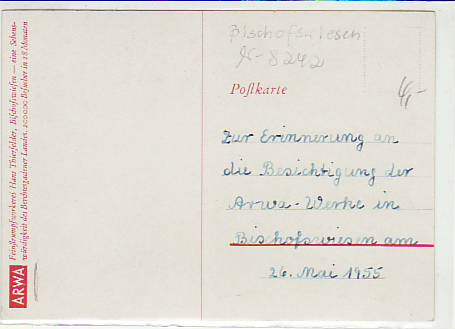 Feinstrumpfwirkerei Hans Thierfelder, Bischofswiesen — eine Sehens-
würdigkeit des Berchtesgadner Landes, 200000 Besucher in 18 Monaten
ARWA
Bischofswiesen
8242
4,-
Postkarte
Zur Erinnerung an
die Besichtigung der
Arwa-Werke in
Bischofswiesen am
26. Mai 1955